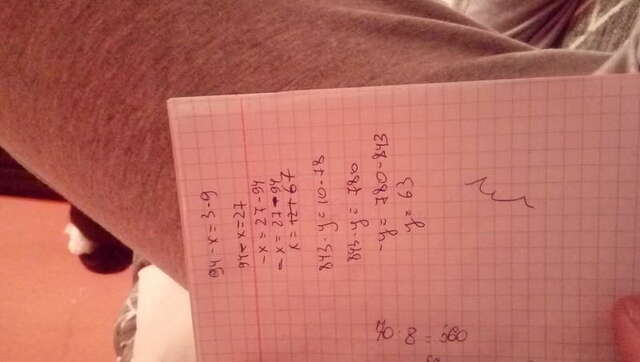 94 - x = 3 · 9
94 - x = 27
-x = 27 - 94
-x = 27 - 94
x = 121 67
843 - y = 10 · 78
843 - y = 780
-y = 780 - 843
y = 63
70 · 8 = 560